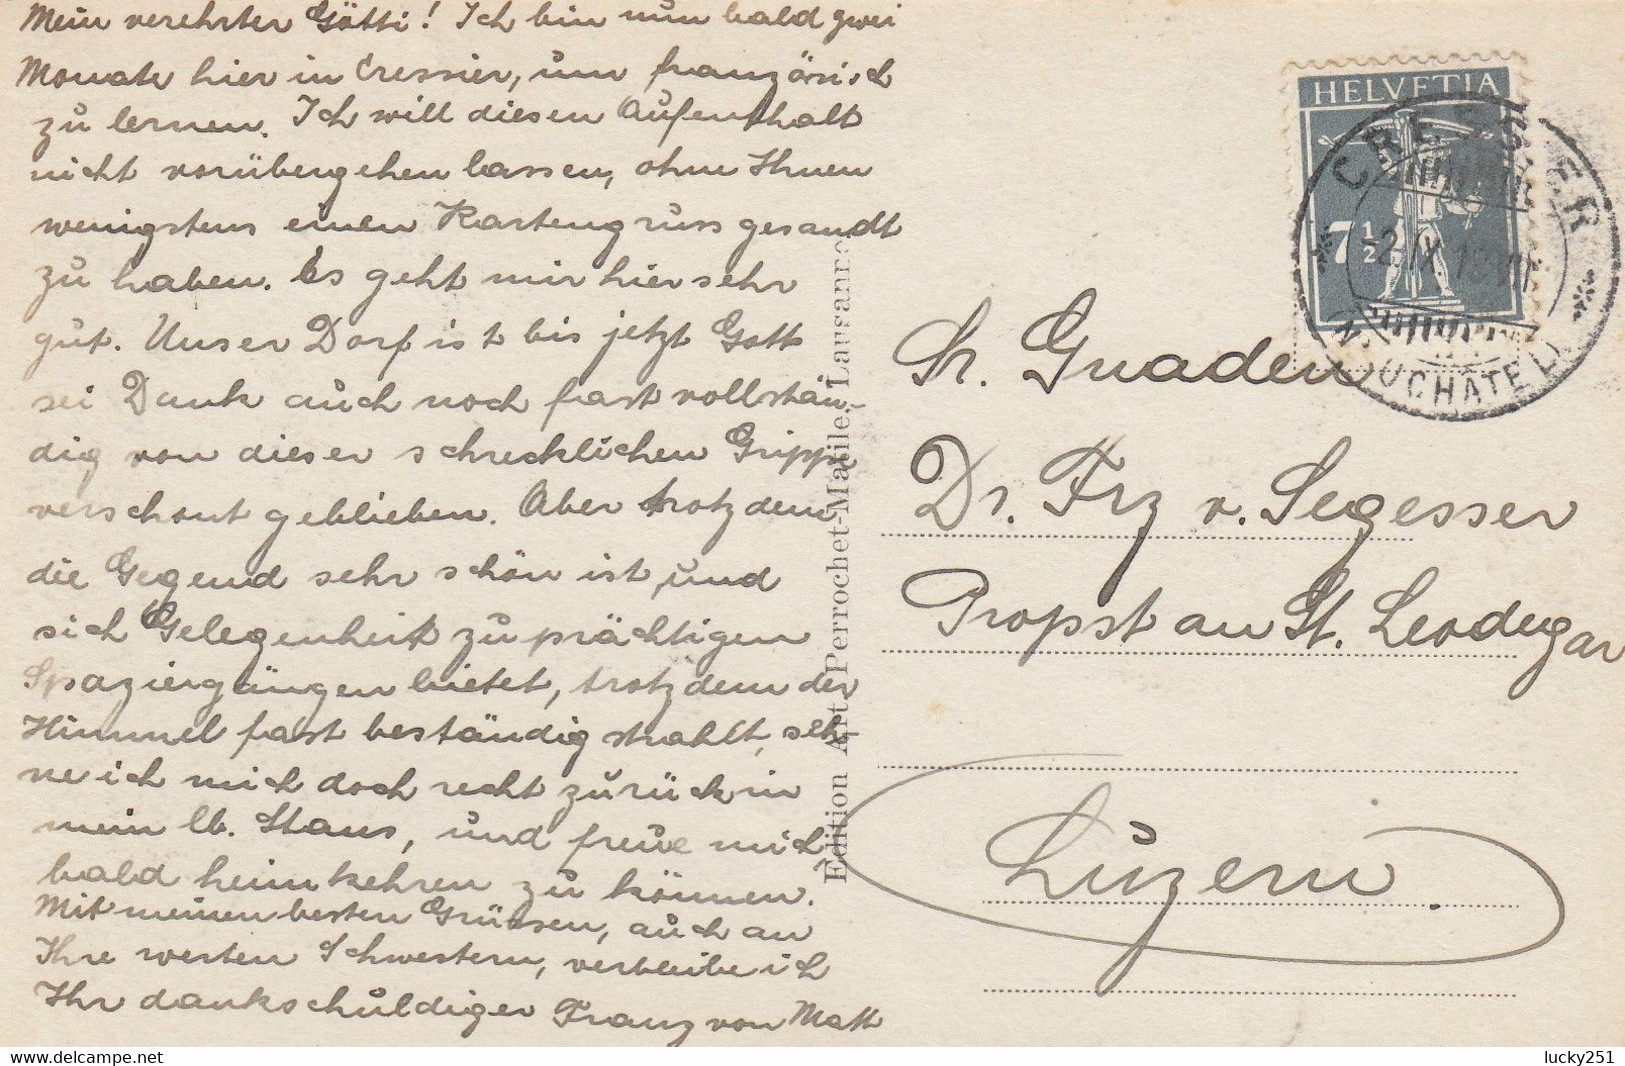 Mein verehrter Götti! Ich bin nun bald zwei
Monate hier in Cressier, um französisch
zu lernen. Ich will diesen Aufenthalt
nicht vorübergehen lassen, ohne Ihnen
wenigstens einen Kartengruss gesandt
zu haben. Es geht mir hier sehr
gut. Unser Dorf ist bis jetzt Gott
sei Dank auch noch fast vollstän-
dig von dieser schrecklichen Grippe
verschont geblieben. Aber trotzdem
die Gegend sehr schön ist, und
sich Gelegenheit zu prächtigen
Spaziergängen bietet, trotzdem der
Himmel fast beständig strahlt, seh-
ne ich mich doch recht zurück in
mein lb. Stans, und freue mich
bald heimkehren zu können.
Mit meinen besten Grüssen, auch an
Ihre werten Schwestern, verbleibe ich
Ihr dankschuldiger Franz von Matt
Édition Art. Perrochet-Matile, Lausanne
HELVETIA
7 1/2
CRESSIER
-2.IX.18.VII
NEUCHÂTEL
Sr. Gnaden
Dr. Frz v. Segesser
Propst an St. Leodegar
Luzern.
lucky251